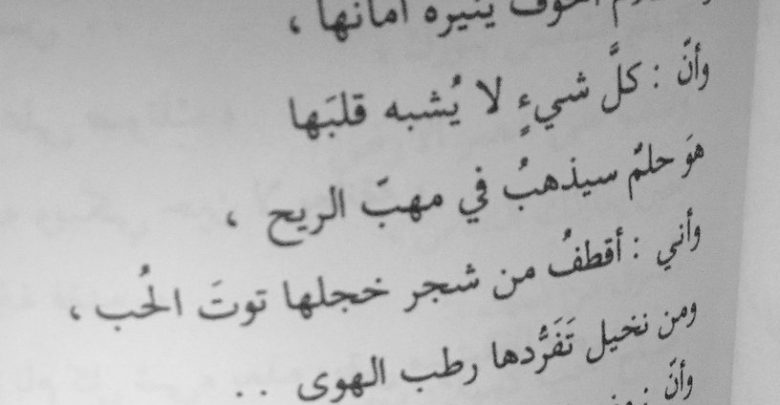 الخوف ينيره أمانها ،
وأنّ : كلَّ شيءٍ لا يُشبه قلبَها
هوَ حلمٌ سيذهبُ في مهبّ الريح ،
وأني : أقطفُ من شجر خجلها توتَ الحُب ،
ومن نخيل تَفَرُّدها رطب الهوى . .
وأنّ :